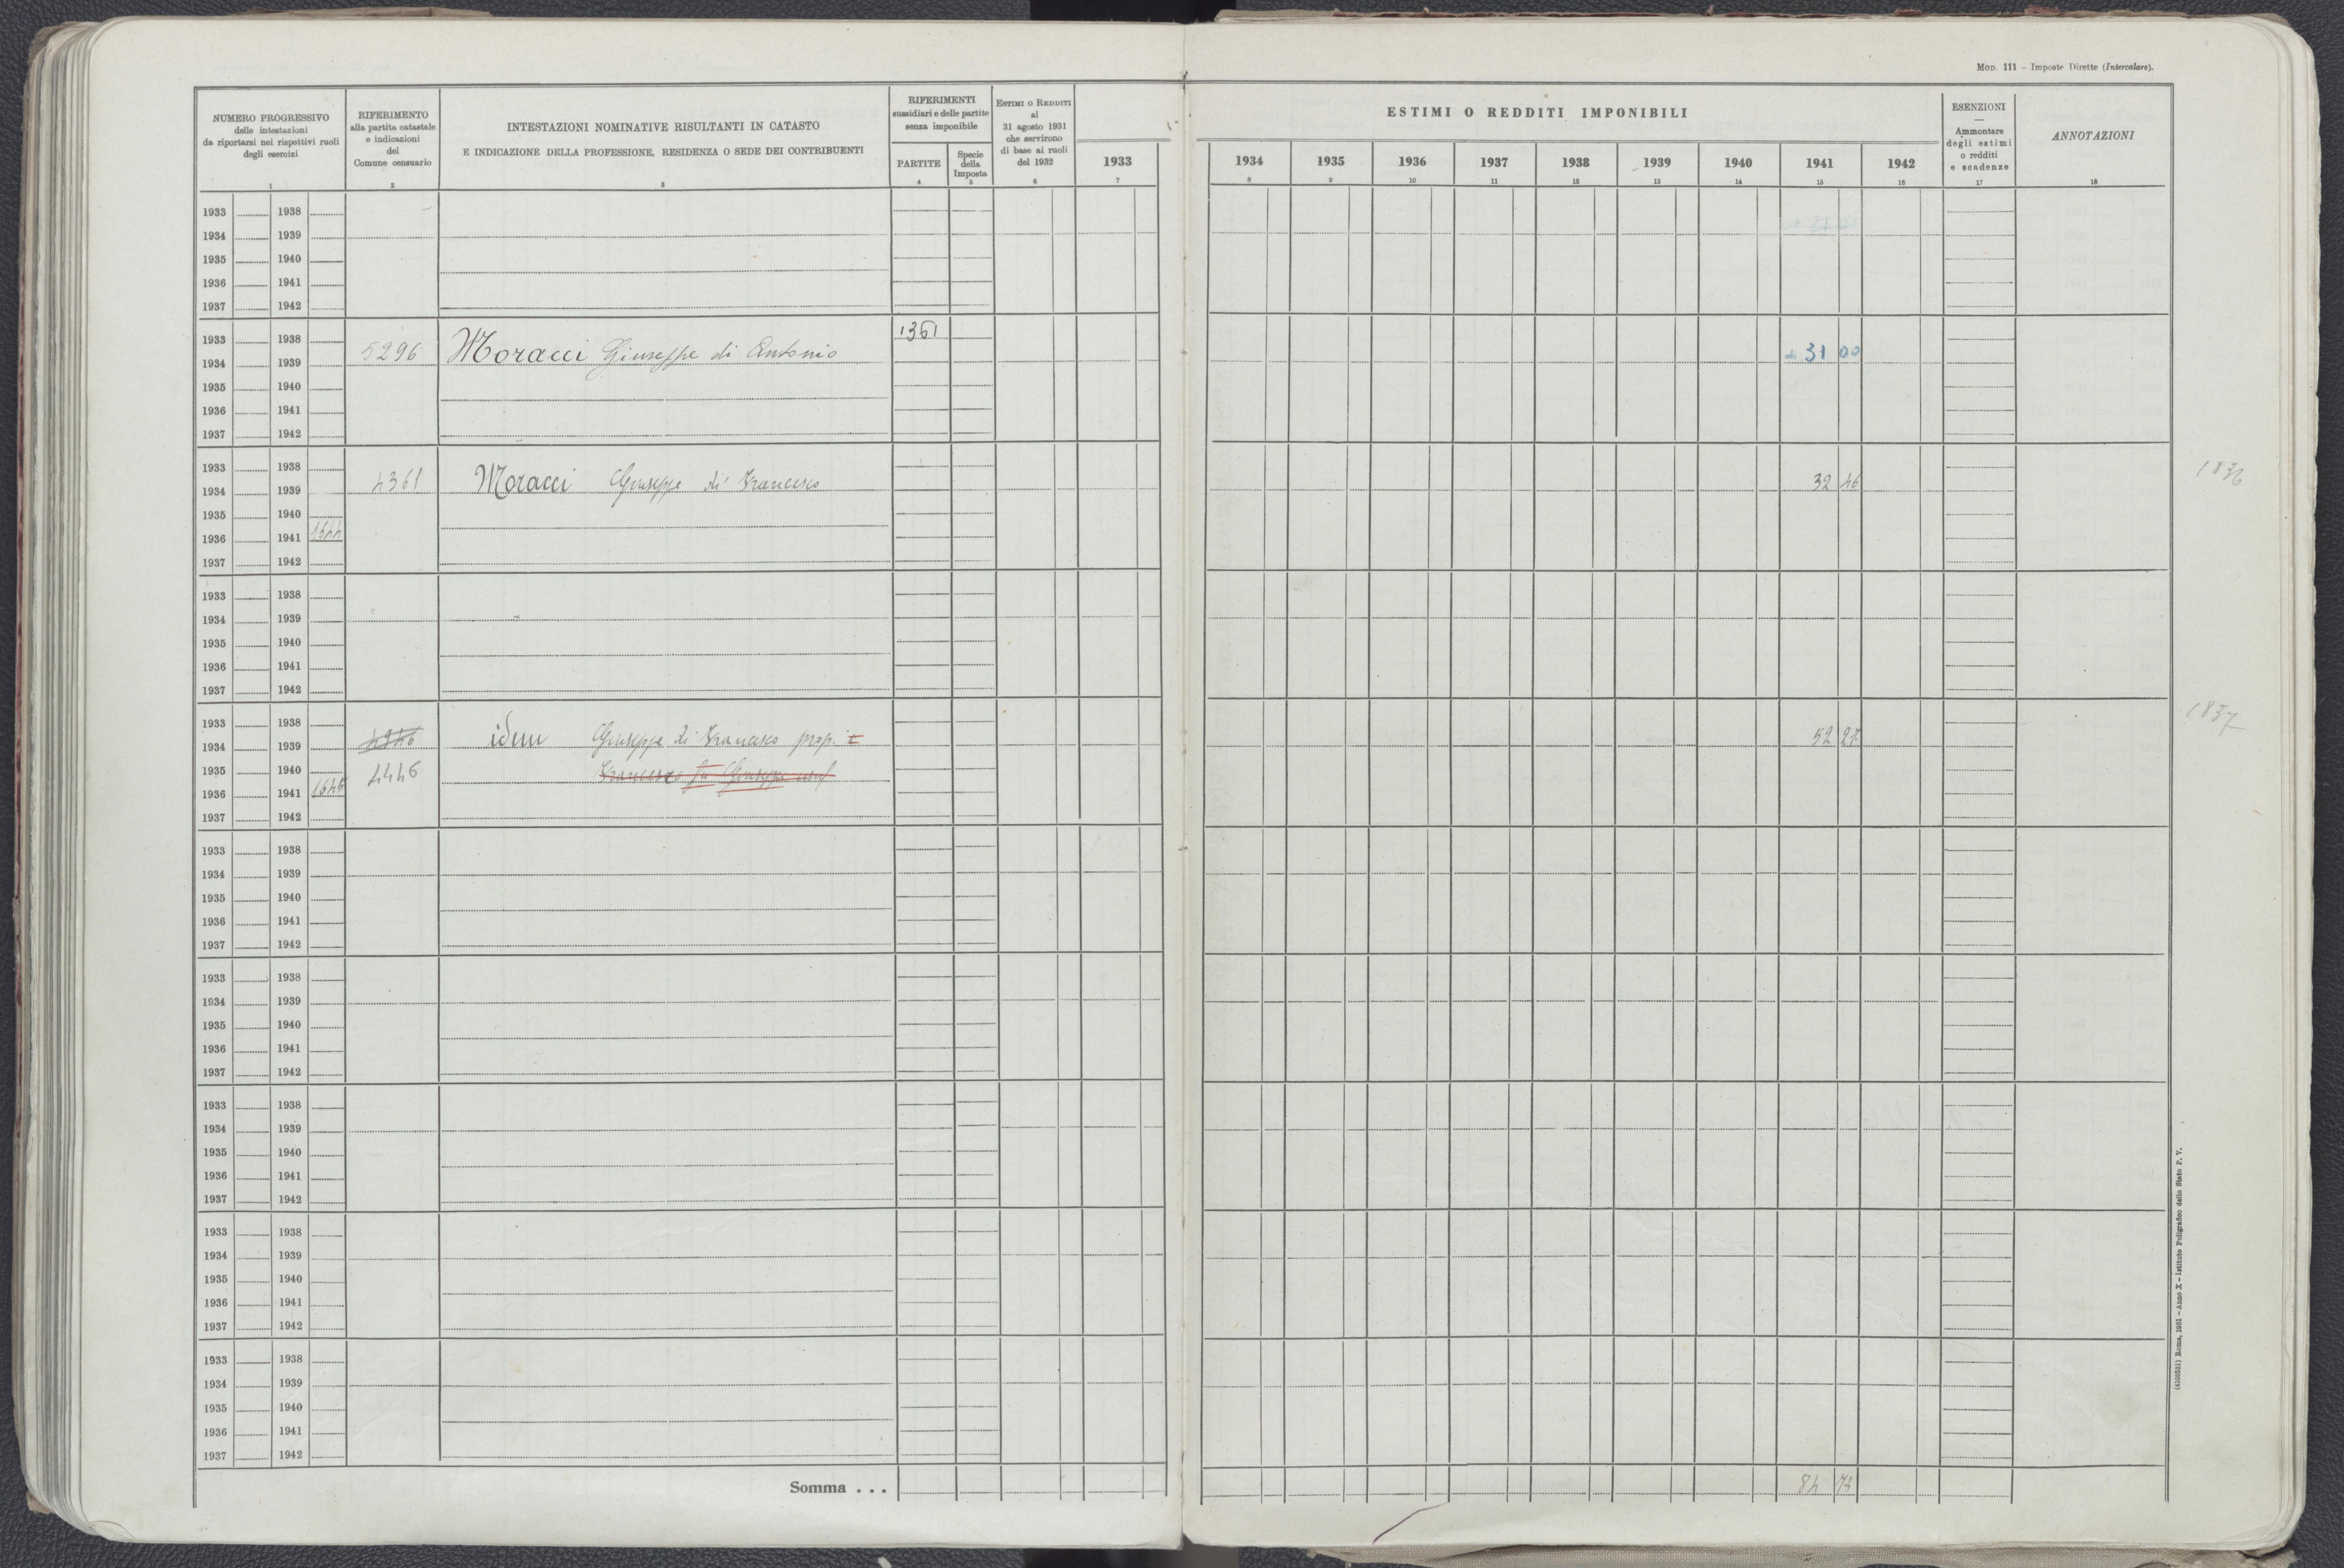 Mod. 111 – Imposte Dirette (Intercalare).
NUMERO PROGRESSIVO
delle intestazioni
da riportarsi nei rispettivi ruoli
degli esercizi
1
RIFERIMENTO
alla partita catastale
e indicazioni
del
Comune censuario
2
INTESTAZIONI NOMINATIVE RISULTANTI IN CATASTO
E INDICAZIONE DELLA PROFESSIONE, RESIDENZA O SEDE DEI CONTRIBUENTI
3
RIFERIMENTI
sussidiari e delle partite
senza imponibile
PARTITE
4
Specie
della
Imposta
5
ESTIMI O REDDITI
al
31 agosto 1931
che servirono
di base ai ruoli
del 1932
6
1933
7
ESTIMI O REDDITI IMPONIBILI
1934 1935 1936 1937 1938 1939 1940 1941 1942
8 9 10 11 12 13 14 15 16
ESENZIONI
—
Ammontare
degli estimi
o redditi
e scadenze
17
ANNOTAZIONI
18
1933 1938
1934 1939
1935 1940
1936 1941
1937 1942
1933 1938 1361
1934 1939 5296 Moracci Giuseppe di Antonio + 31 00
1935 1940
1936 1941
1937 1942
1933 1938
1934 1939 4361 Moracci Giuseppe di Francesco 32 46 1836
1935 1940
1936 1941 1644
1937 1942
1933 1938
1934 1939
1935 1940
1936 1941
1937 1942
1933 1938 1837
1934 1939 idem Giuseppe di Francesco prop. e 52 27
1935 1940 4446 Francesco fu Giuseppe usuf
1936 1941 1645
1937 1942
1933 1938
1934 1939
1935 1940
1936 1941
1937 1942
1933 1938
1934 1939
1935 1940
1936 1941
1937 1942
1933 1938
1934 1939
1935 1940
1936 1941
1937 1942
1933 1938
1934 1939
1935 1940
1936 1941
1937 1942
1933 1938
1934 1939
1935 1940
1936 1941
1937 1942
Somma . . . 84 73
(4102531) Roma, 1931 – Anno X – Istituto Poligrafico dello Stato P. V.